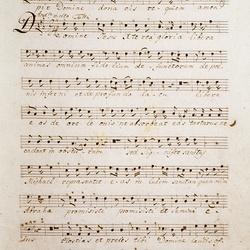 pie Domine dona eis re qui em amen
Domine Jesu Xte rex gloria libera
animas omnium fide lium de functorum de poe
nis inferni et de profundo la cu libera
eas de ore le onis ne absorbeat eas tartarus ne
cadant in obscu rum sed sig nifer sanctus
Michael repraesentet e as in lucem sanctam quam olim
Abrahae promisisti promisisti et semini e
jus Hostias et preces tibi Domine laudis of